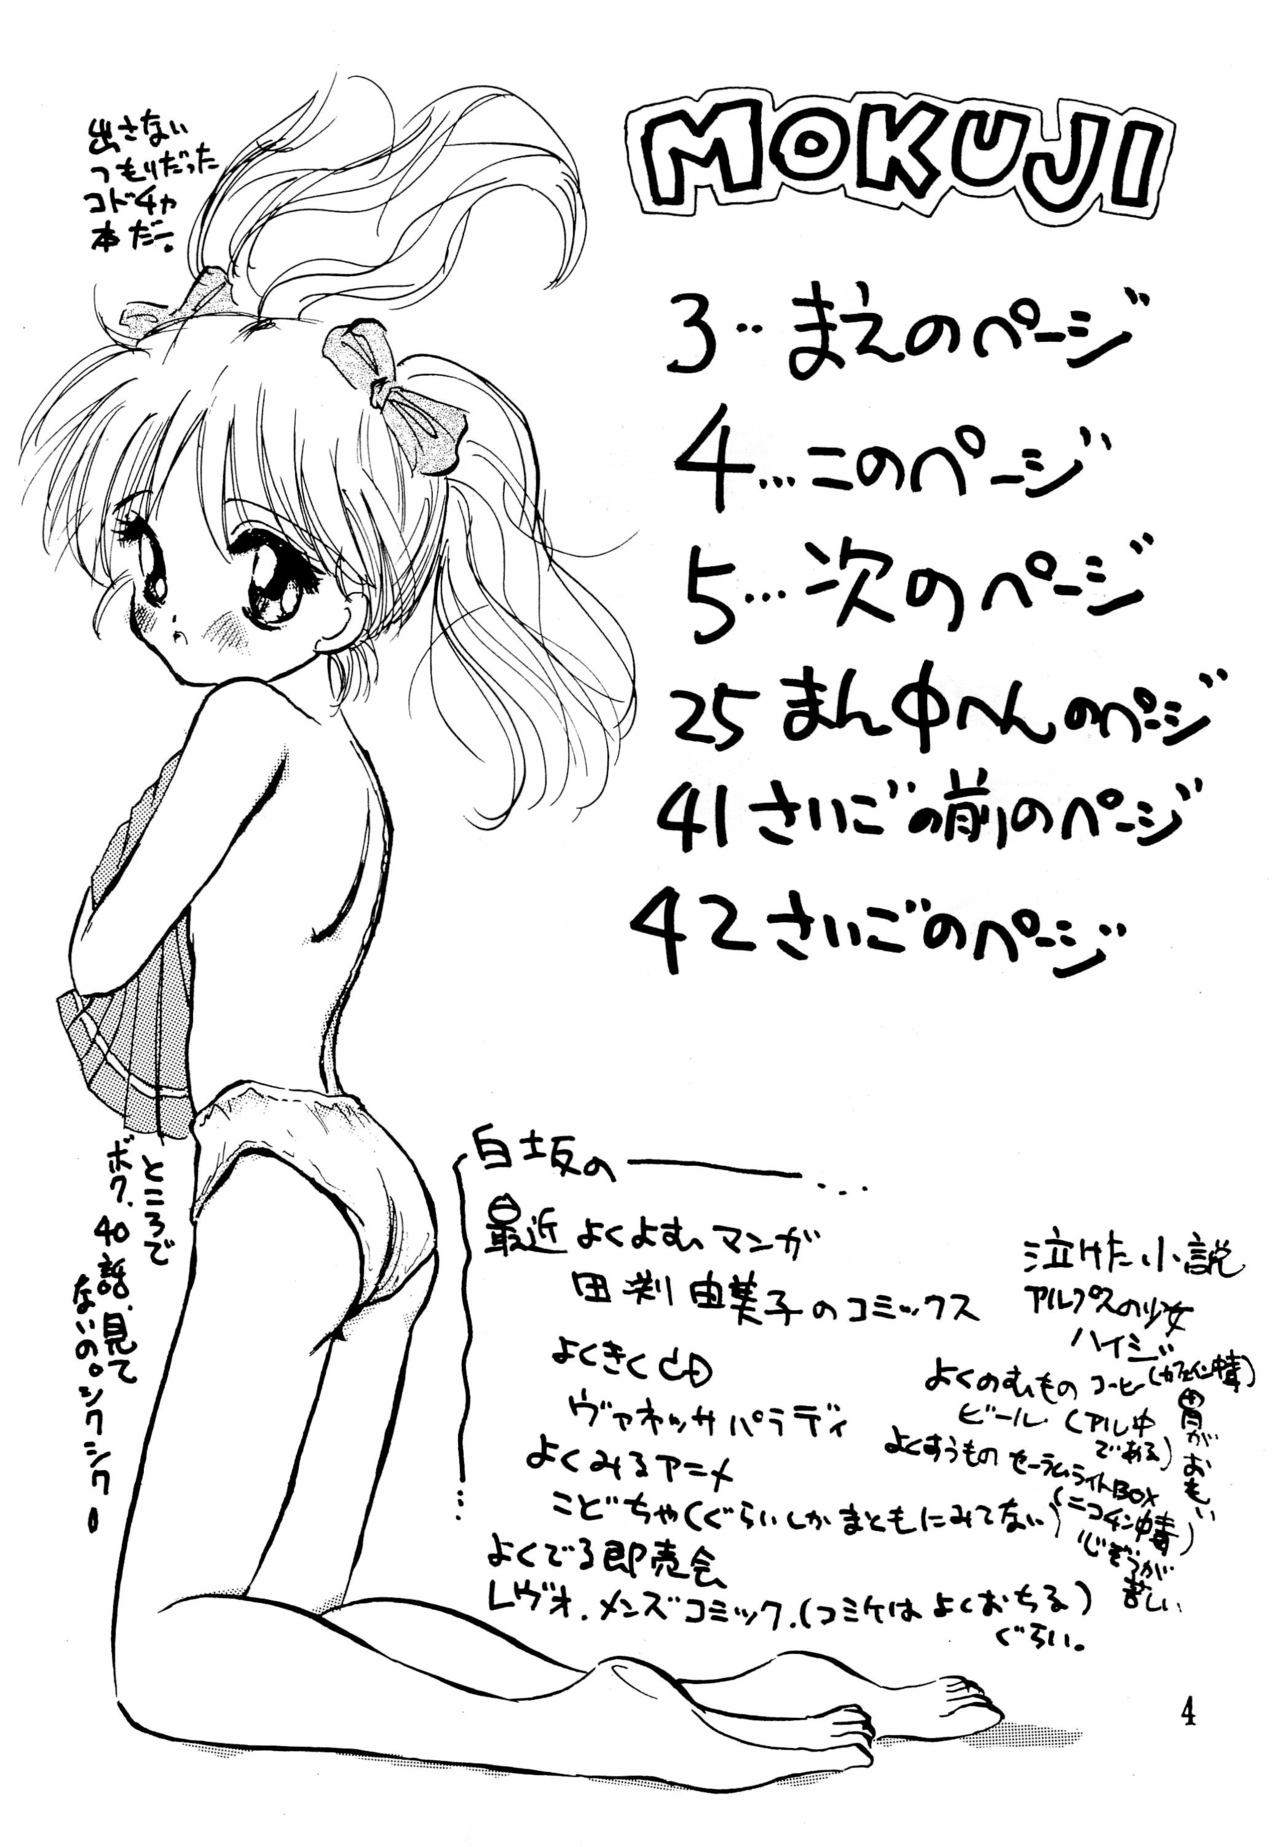 MOKUJI
出さない
つもりだった
コドチャ
本だー。
3‥まえのページ
4…このページ
5…次のページ
25 まん中へんのページ
41 さいごの前のページ
42 さいごのページ
ところで
ボク、40話、見て
ないの。シクシクー
白土坂の
最近 よくよむマンガ
由美子のコミックス
よくきくCD
ヴァネッサパラディ
よくみるアニメ
こどちゃ(ぐらいしかまともにみてない)
よくでる即売会
レヴォ.メンズコミック.(コミケはよくおちる)
ぐらい。
泣けた小説
アルプスの少女
ハイジ
よくのむもの コーヒー(カフェイン中毒)
ビール.(アル中
である)
よくすうもの セーラムライトBOX
(ニコチン中毒)
胃がおもい
しんぞうが
苦しい
4